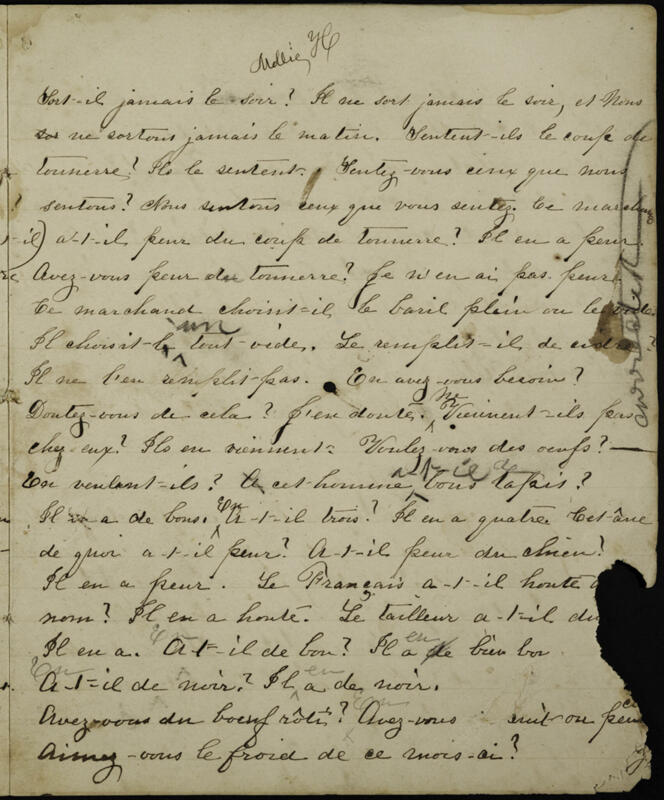 Mollie H
Sort-il jamais le soir? Il ne sort jamais le soir, et Nous
ne sortons jamais le matin. Sentent-ils le coup de
tonnerre? Ils le sentent. Sentez-vous ceux que nous
sentons? Nous sentons ceux que vous sentez. Ce marchand
t-il) a-t-il peur du coup de tonnerre? Il en a peur.
Avez-vous peur du tonnerre? Je n'en ai pas peur.
Ce marchand choisit-il le baril plein ou le vide
un
Il choisit-le tout-vide. Le remplit-il de cidre?
Il ne l'en remplit-pas. En avez-vous besoin?
Ne
Doutez-vous de cela? J'en doute. Viennent-ils pas
chez-eux? Ils en viennent- Voulez-vous des oeufs? —
a-t-il
En veulent-ils? A cet-homme bons tapis?
En
Il en a de bons. A-t-il trois? Il en a quatre. Cet-âne
de quoi a-t-il peur? A-t-il peur du chien?
Il en a peur. Le Français a-t-il honte
nom? Il en a honte. Le tailleur a-t-il du
En en
Il en a. A-t-il de bon? Il a de bien bon
En en
A-t-il de noir? Il a de noir.
Avez-vous du boeuf rôti? Avez-vous nuit ou peu
Aimez-vous le froid de ce mois-ci?